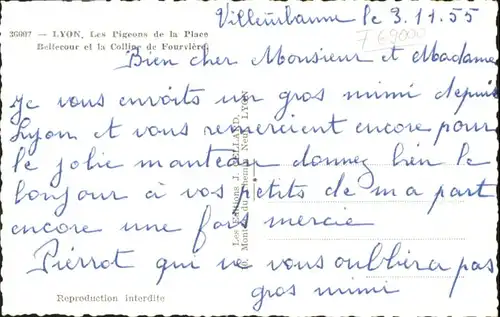 Villeurbanne le 3.11.55
36007 — LYON, Les Pigeons de la Place
Bellecour et la Colline de Fourvière
T 69000
Bien cher Monsieur et Madame
Je vous envoits un gros mimi depuis
Lyon et vous remerient encore pour
le jolie manteau donnez bien le
bonjour à vos petits de ma part
encore une fois mercie
Pierrot qui ne vous oubliera pas
gros mimi
Les Editions J. CELLARD,
Montée du Chemin Neuf, LYON
Reproduction interdite